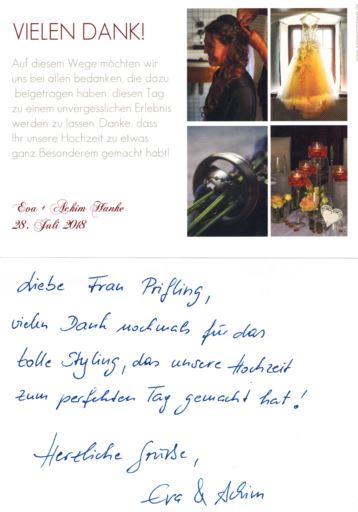 VIELEN DANK!
Auf diesem Wege möchten wir
uns bei allen bedanken, die dazu
beigetragen haben, diesen Tag
zu einem unvergesslichen Erlebnis
werden zu lassen. Danke, dass
Ihr unsere Hochzeit zu etwas
ganz Besonderem gemacht habt!
Eva + Achim Hanke
28. Juli 2018
Liebe Frau Prißling,
vielen Dank nochmals für das
tolle Styling, das unsere Hochzeit
zum perfekten Tag gemacht hat!
Herzliche Grüße,
Eva & Achim